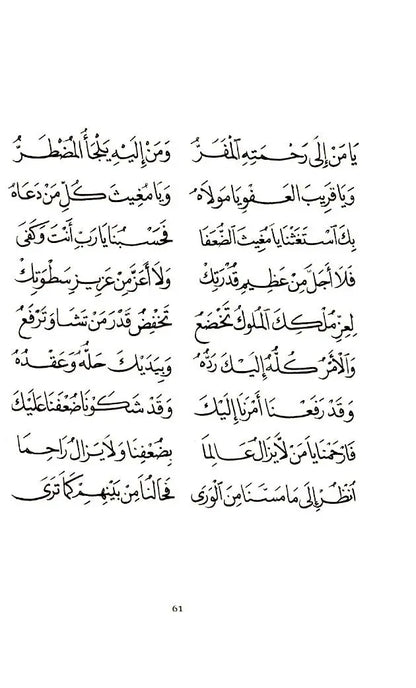 يَا مَنْ إِلَى رَحْمَتِهِ الْمَفَرُّ وَمَنْ إِلَيْهِ يَلْجَأُ الْمُضْطَرُّ
وَيَا قَرِيبَ الْعَفْوِ يَا مَوْلَاهُ وَيَا مُغِيثَ كُلِّ مَنْ دَعَاهُ
بِكَ اسْتَغَثْنَا يَا مُغِيثَ الضُّعَفَا فَحَسْبُنَا يَا رَبِّ أَنْتَ وَكَفَى
فَلَا أَجَلَّ مِنْ عَظِيمِ قُدْرَتِكْ وَلَا أَعَزَّ مِنْ عَزِيزِ سَطْوَتِكْ
لِعِزِّ مُلْكِكَ الْمُلُوكُ تَخْضَعُ تَخْفِضُ قَدْرَ مَنْ تَشَا وَتَرْفَعُ
وَالْأَمْرُ كُلُّهُ إِلَيْكَ رَدُّهُ وَبِيَدَيْكَ حَلُّهُ وَعَقْدُهُ
وَقَدْ رَفَعْنَا أَمْرَنَا إِلَيْكَ وَقَدْ شَكَوْنَا ضُعْفَنَا عَلَيْكَ
فَارْحَمْنَا يَا مَنْ لَا يَزَالُ عَالِمَا بِضُعْفِنَا وَلَا يَزَالُ رَاحِمَا
انْظُرْ إِلَى مَا مَسَّنَا مِنَ الْوَرَى فَحَالُنَا مِنْ بَيْنِهِمْ كَمَا تَرَى
61